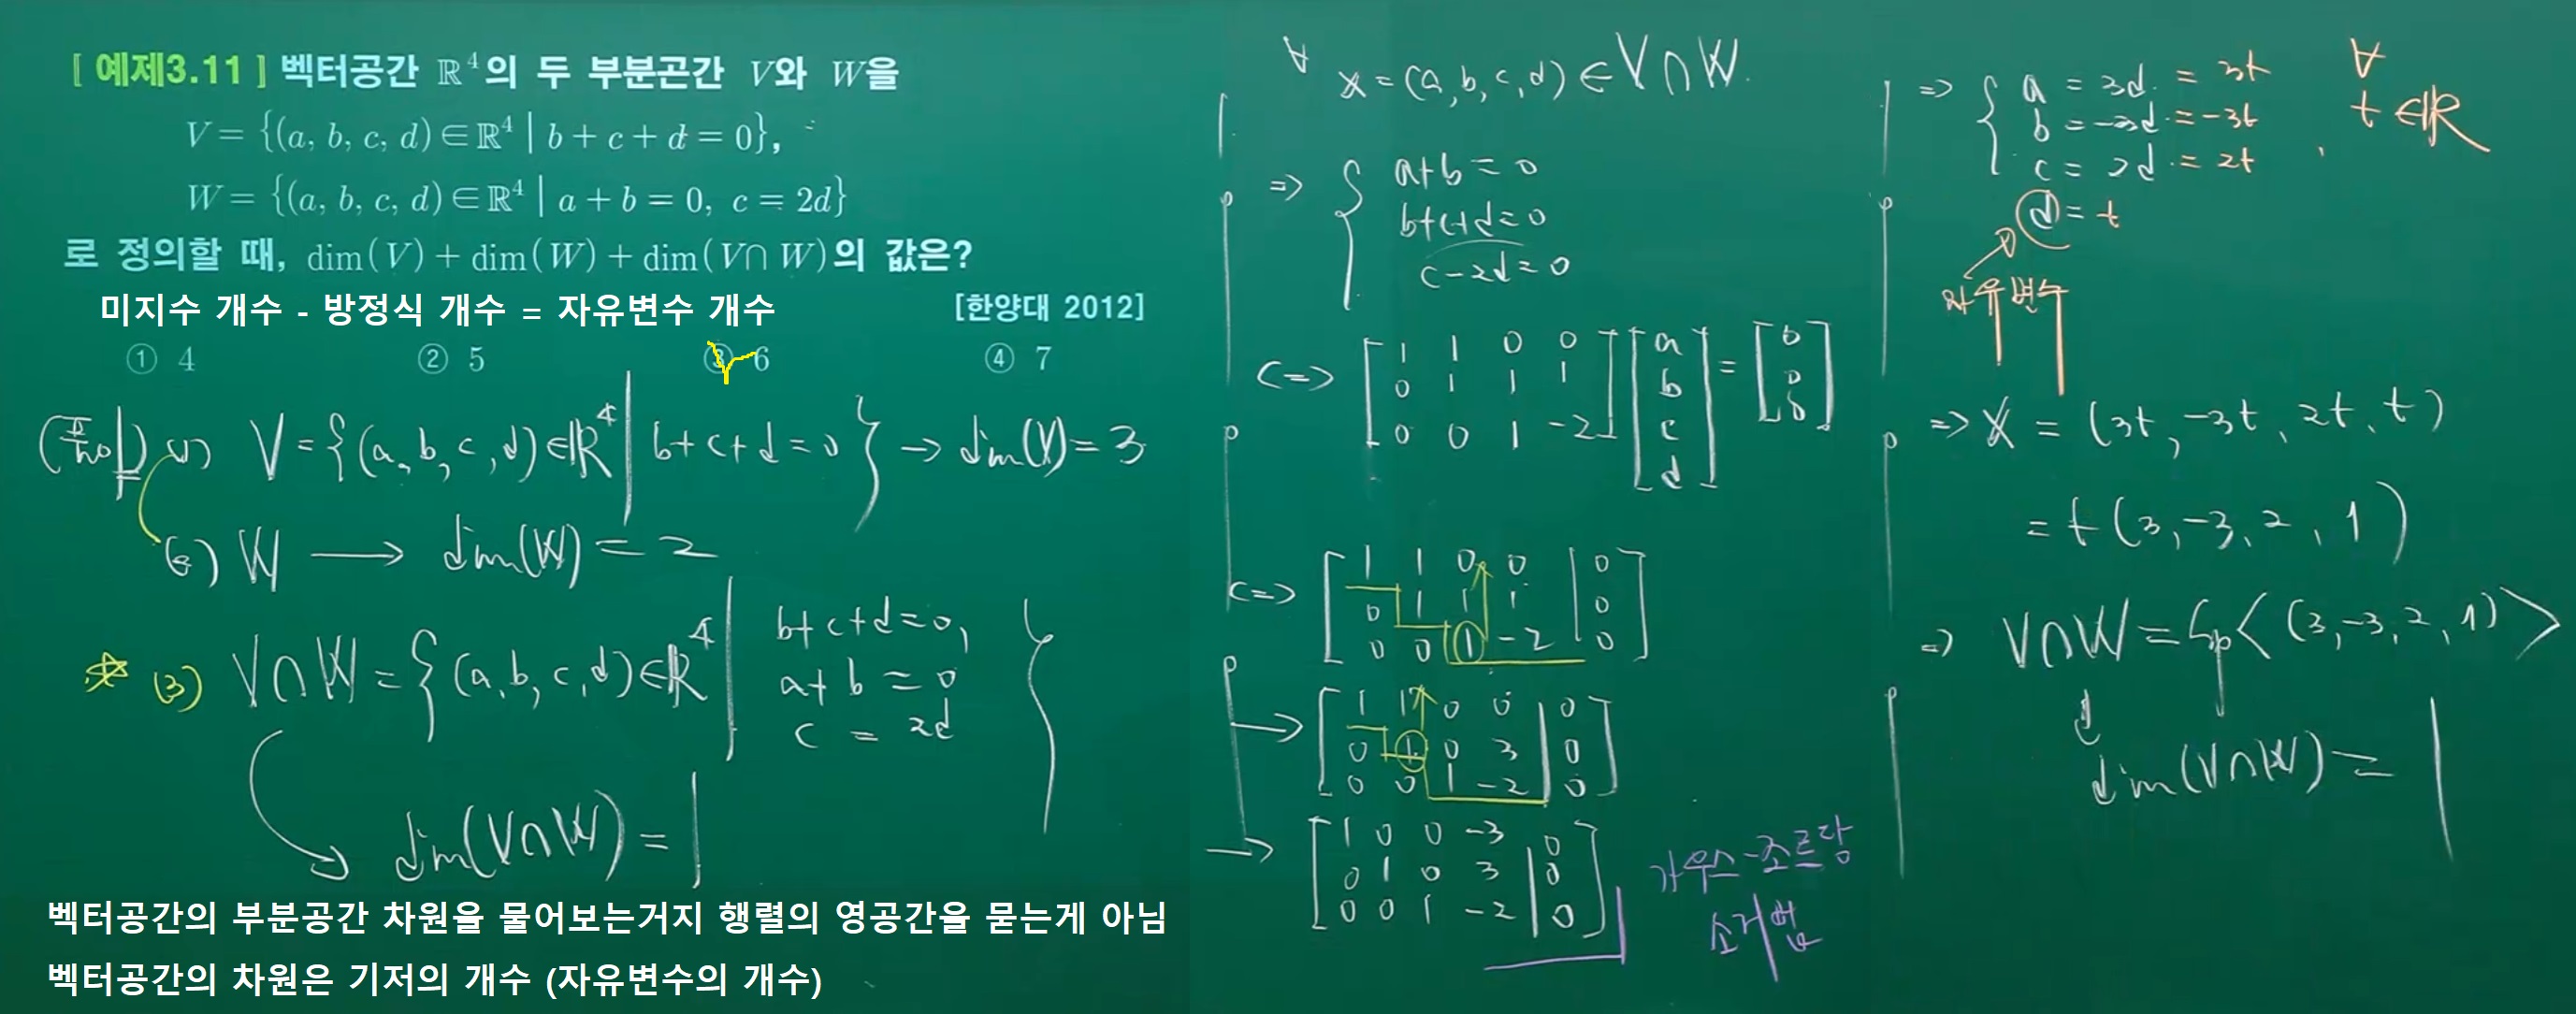 [ 예제3.11 ] 벡터공간 ℝ⁴의 두 부분곤간 V와 W을
V = {(a, b, c, d)∈ℝ⁴ | b + c + d = 0},
W = {(a, b, c, d)∈ℝ⁴ | a + b = 0, c = 2d}
로 정의할 때, dim(V) + dim(W) + dim(V∩W)의 값은?
미지수 개수 - 방정식 개수 = 자유변수 개수 [한양대 2012]
① 4 ② 5 ③ 6 ④ 7
(풀이) (1) V = {(a, b, c, d)∈ℝ⁴ | b+c+d=0} → dim(V) = 3
(2) W → dim(W) = 2
☆ (3) V∩W = {(a, b, c, d)∈ℝ⁴ | b+c+d=0,
a+b = 0
c = 2d }
dim(V∩W) = 1
벡터공간의 부분공간 차원을 물어보는거지 행렬의 영공간을 묻는게 아님
벡터공간의 차원은 기저의 개수 (자유변수의 개수)
∀ x = (a, b, c, d) ∈ V∩W.
⇒ { a+b = 0
b+c+d = 0
c-2d = 0
⇔ [ 1 1 0 0 ] [ a ] = [ 0 ]
[ 0 1 1 1 ] [ b ] [ 0 ]
[ 0 0 1 -2 ] [ c ] [ 0 ]
[ d ]
⇔ [ 1 1 0 0 | 0 ]
[ 0 1 1 1 | 0 ]
[ 0 0 1 -2 | 0 ]
→ [ 1 1 0 0 | 0 ]
[ 0 1 0 3 | 0 ]
[ 0 0 1 -2 | 0 ]
→ [ 1 0 0 -3 | 0 ]
[ 0 1 0 3 | 0 ]
[ 0 0 1 -2 | 0 ]
가우스-조르당
소거법
⇒ { a = 3d = 3t ∀
b = -3d = -3t , t∈ℝ
c = 2d = 2t
d = t
자유변수
⇒ x = (3t, -3t, 2t, t)
= t(3, -3, 2, 1)
⇒ V∩W = Sp<(3, -3, 2, 1)>
dim(V∩W) = 1